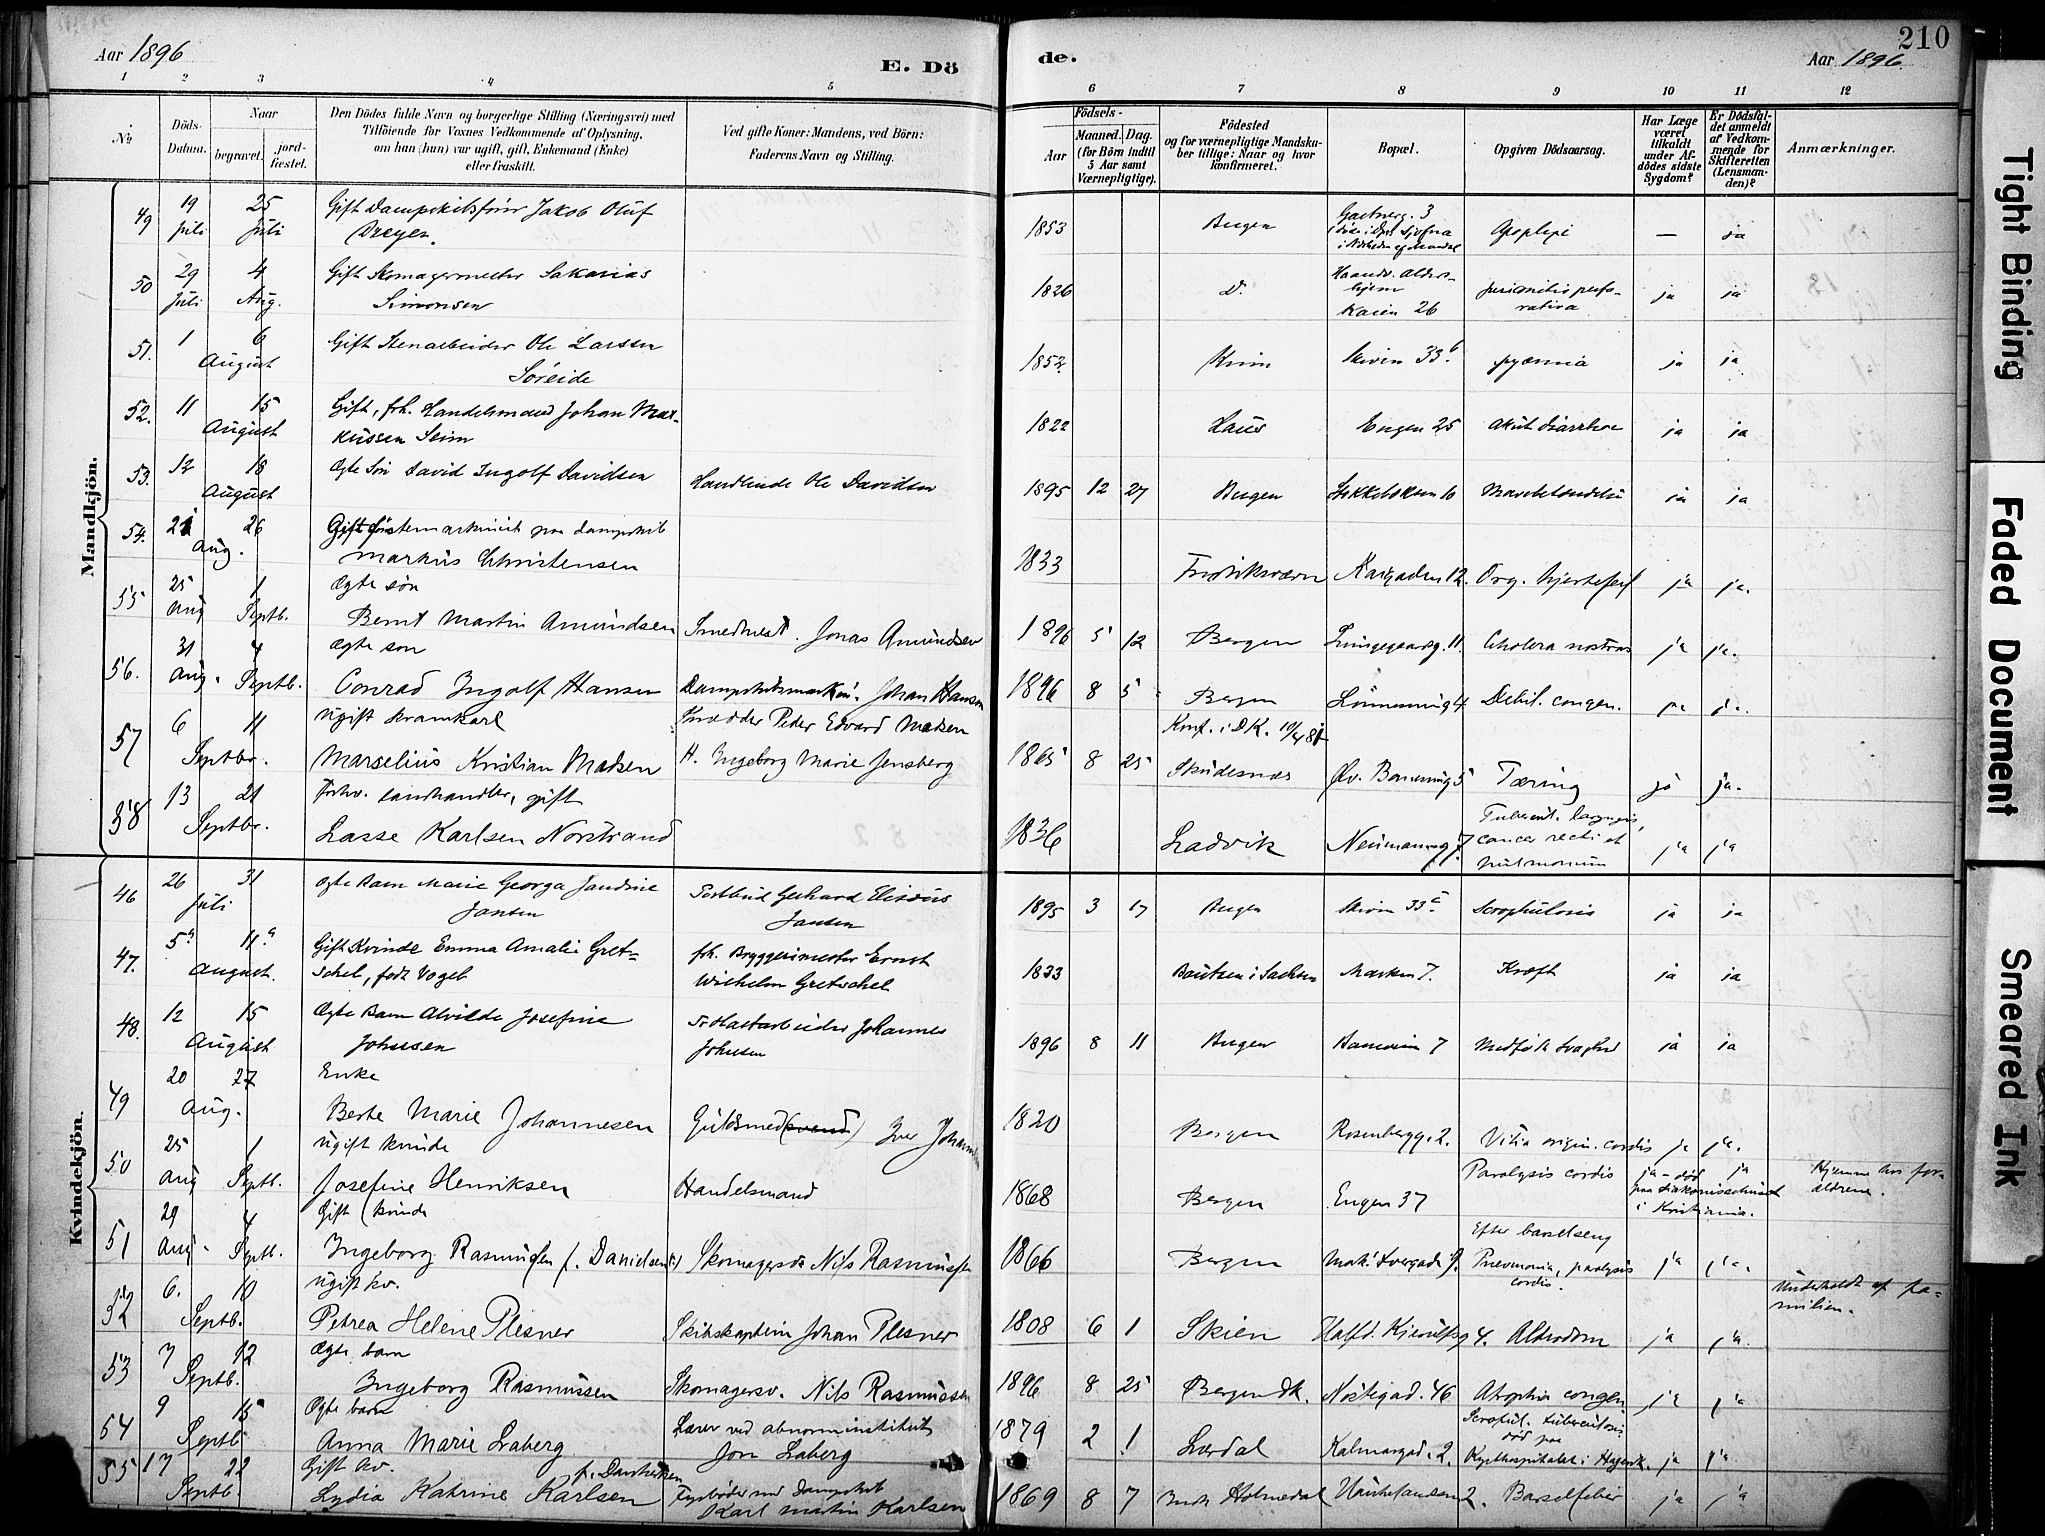 Aar 1896
E. Dö
de.
Aar 1896
210
1 2 3 4 5 6 7 8 9 10 11 12
№
Döds-Datum.
Naar
begravet.
jordfæstet.
Den Dödes fulde Navn og borgerlige Stilling (Næringsvei) med
Tilföiende for Voxnes Vedkommende af Oplysning,
om han (hun) var ugift, gift, Enkemand (Enke)
eller fraskilt.
Ved gifte Koner: Mandens, ved Börn:
Faderens Navn og Stilling.
Födsels-
Aar
Maaned. Dag.
(for Börn indtil
5 Aar samt
Værnepligtige).
Födested
og for værnepligtige Mandskaber tillige: Naar og hvor
konfirmeret.
Bopæl.
Opgiven Dödsaarsag.
Har Læge
været
tilkaldt
under Afdödes sidste
Sygdom?
Er Dödsfaldet anmeldt
af Vedkommende for
Skifteretten
(Lensmanden)?
Anmærkninger.
Mandkjön.
49 19 Juli 25 Juli Gift Dampskibsfører Jakob Oluf
Dreyer. 1853 Bergen Apoplexi — ja
50 29 Juli 4 Aug. Gift Skomagermester Sakarias
Simonsen 1826 D. Haandv. Alders-
hjem
Kaien 26 ja ja
51. 1 6 August Gift Stenarbeider Ole Larsen
Soreide 1852 Skiven 33 b pyæmia ja ja
52. 11 15 August Gift, frh. Handelsmand Johan Mar-
kussen Seim 1822 Haus Engen 25 Akut diarrhoe ja ja
53. 12 18 August Ægte Søn David Ingolf Davidsen Handlende Ole Davidsen 1895 12 27 Bergen ja ja
54. 21 Aug. 26 Gift førstemaskinist paa dampskib
Markus Christensen 1833 Fredriksværn 12. Org. hjertefeil ja ja.
55 25 Aug 1 Septb. Ægte søn
Bernt Martin Amundsen Smedmest. Jonas Amundsen 1896 5 12 Bergen Lungegaardsg. 11. Cholera nostras ja ja.
56. 31 Aug. 4 Septb. Ægte søn
Conrad Ingolf Hansen Dampskibsmaskin. Johan Hansen 1896 8 5 Bergen 4 Debil. congen. ja ja.
57 6 11 Septbr. Ugift kramkarl
Marselius Kristian Madsen Skrædder Peder Edvard Madsen
H. Ingeborg Marie Jensberg 1865 8 25 Konf. i D.K. 10/4 81
Skudesnæs Tæring ja ja.
58 13 21 Septbr. Forhv. landhandler, gift
Lasse Karlsen Norstrand 1836 Ladvik Neumannsg 7 Tubercul. laryngis,
cancer recti et
pulmonum ja ja
Kvindekjön.
46 26 31 Juli Ægte Barn Marie Georga Jandine
Jansen Postbud Gerhard Eliseus
Jansen 1895 3 17 Bergen Skiven 33 c Scrophulosis ja ja
47. 5 11 August. Gift Kvinde Emma Amalie Gret-
schel, født Vogel frh. Bryggerimester Ernst
Wilhelm Gretschel 1833 Bautzen i Sachsen Marken 7. Kræft ja ja
48. 12 15 August Ægte Barn Alvilde Josefine
Johnsen Johannes
Johnsen 1896 8 11 Bergen 7 Medfødt Svaghed ja ja
49 20 27 Aug. Enke
Berte Marie Johannesen Guldsmed (svend) Iver 1820 Bergen Rosenbergg. 2. Vitia origin. cordis ja ja.
50 25 Aug 1 Septb. Ugift kvinde
Josefine Henriksen Handelsmand 1868 Bergen Engen 37 Paralysis cordis ja – død
paa diakonissehuset
i Kristiania. ja Hjemme hos for-
ældrene.
51 29 Aug. 4 Septb. Gift kvinde
Ingeborg Rasmussen f. Danielsen Skomagersv. Nils Rasmussen 1866 Bergen 9. Efter barselseng
Pneumonia, paralysis
cordis. ja ja.
52 6. 10 Septb. Ugift kv.
Petrea Helene Plesner Skibskaptein Johan Plesner 1808 6 1 Skien Halfd. Kjerulfsg 4. Alderdom ja ja. Underholdt af fa-
milien.
53 7 12 Septb. Ægte barn
Ingeborg Rasmussen Skomagersv. Nils Rasmussen 1896 8 25 Bergen dk. Nøstegad. 46 Atrophia congen. ja ja
54 9 15 Septb Ægte barn
Anna Marie Laberg Lærer ved abnorminstitut
Jon Laberg 1879 2 1 Lærdal Kalmargad. 2. Scroful. tuberculosis
død paa
Kysthospitalet i Hagevik. ja ja
55 17 22 Septb. Gift kv.
Lydia Katrine Karlsen Fyrbøder ved dampskib
Karl Martin Karlsen 1869 8 7 Indr. Holmedal 2. Barselfeber ja ja
Tight Binding
Faded Document
Smeared Ink